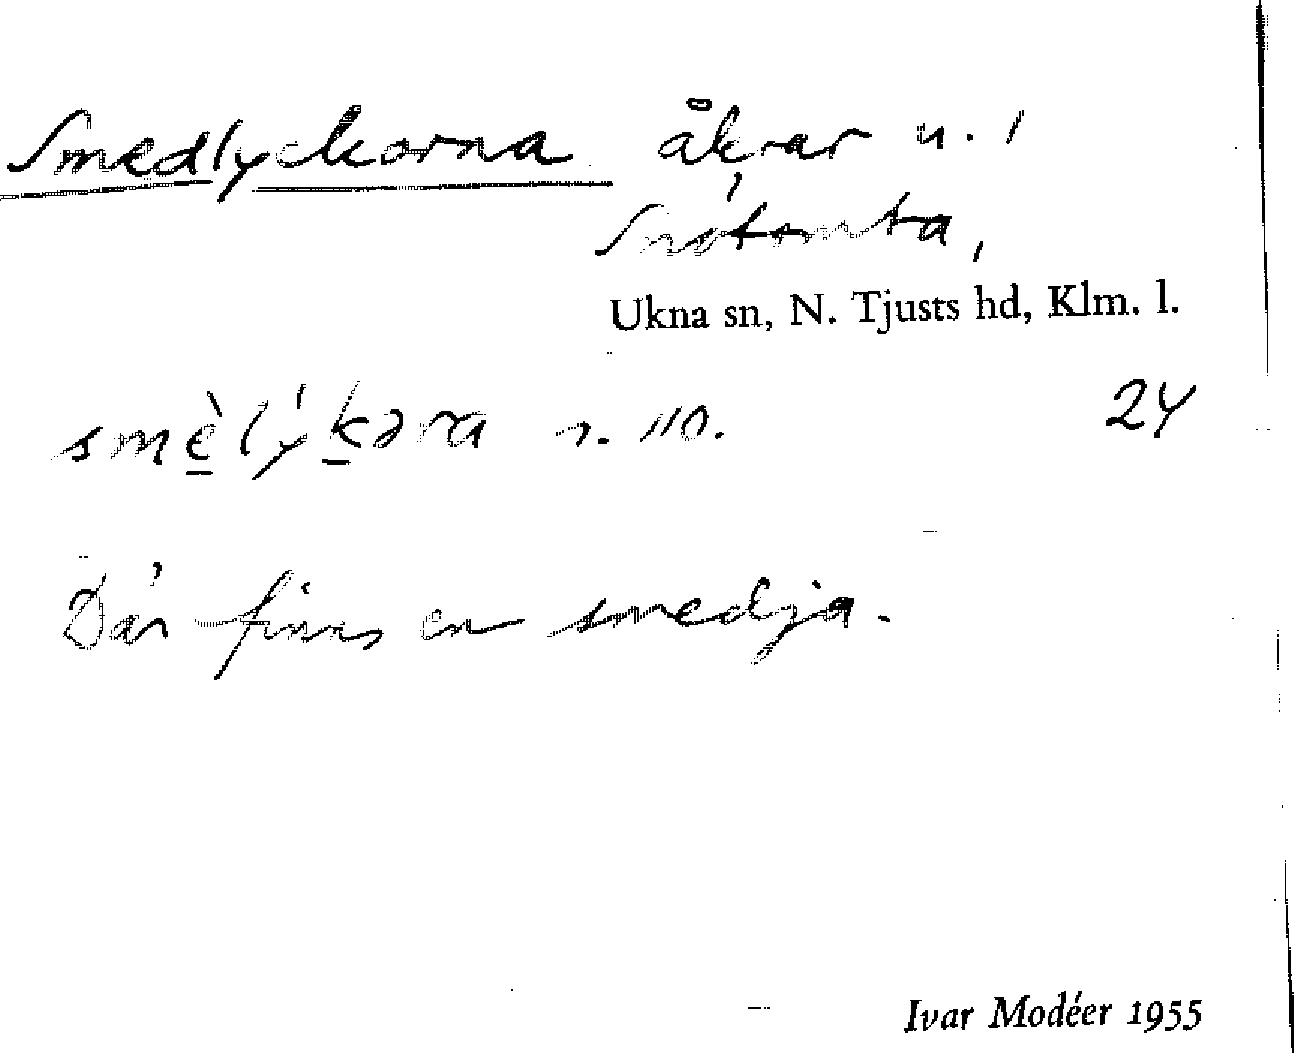 Smedlyckorna åkrar u. 1
Snötomta,
Ukna sn, N. Tjusts hd, Klm. l.
smèlýkəra 24
Där finns en smedja.
Ivar Modéer 1955